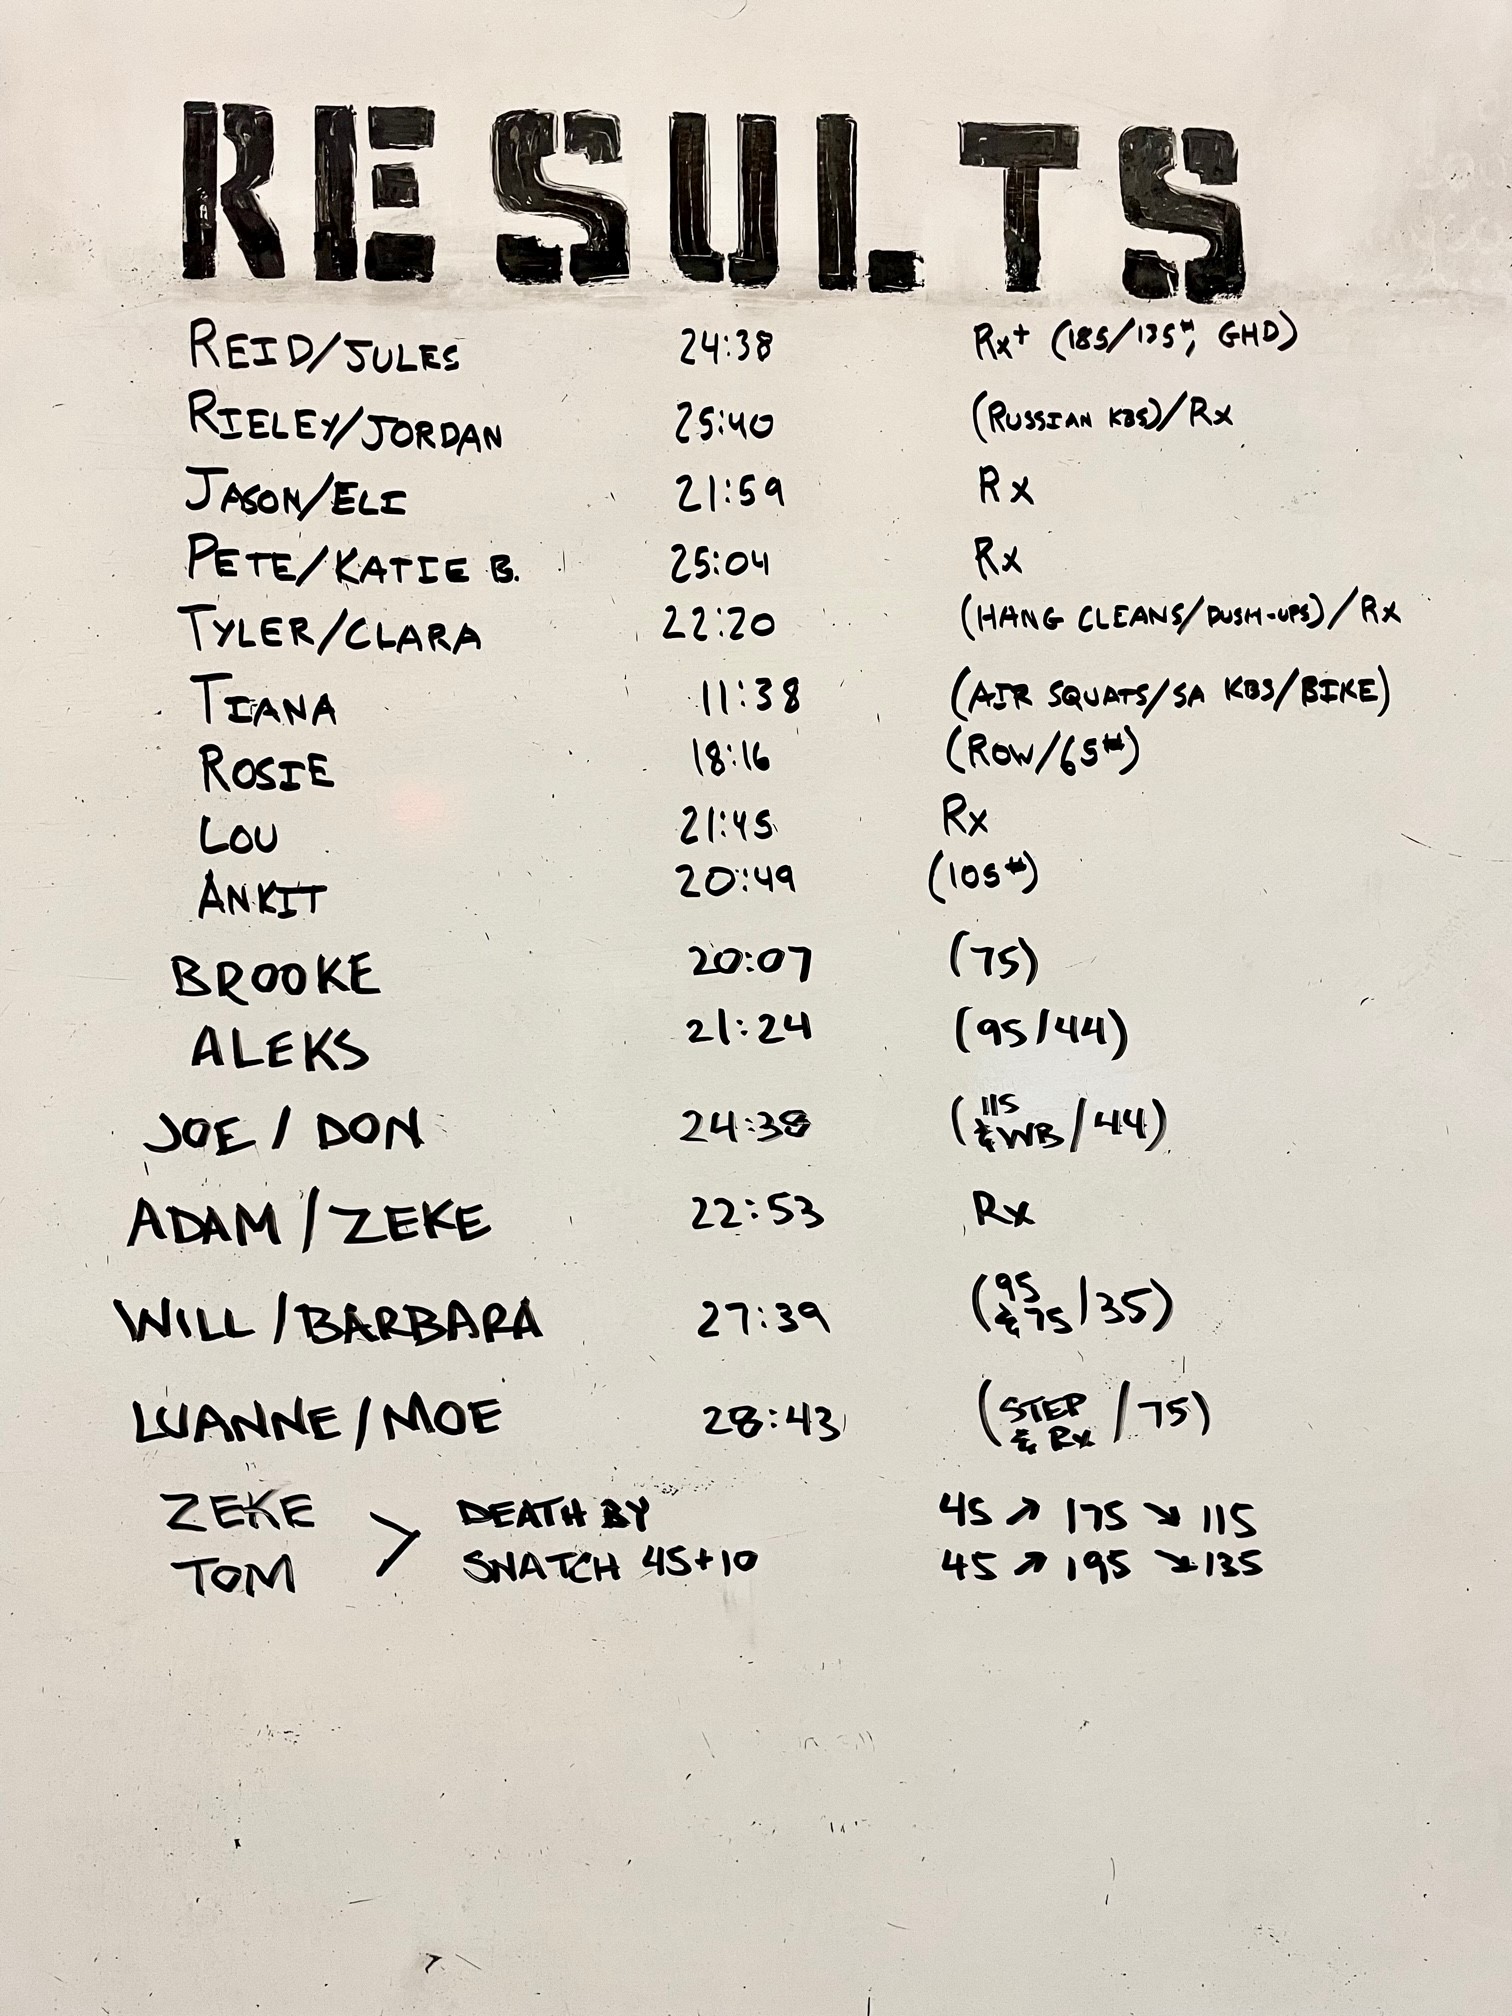 RESULTS
REID/JULES 24:38 Rx+ (185/135#, GHD)
RIELEY/JORDAN 25:40 (RUSSIAN KBS)/Rx
JASON/ELI 21:59 Rx
PETE/KATIE B. 25:04 Rx
TYLER/CLARA 22:20 (HANG CLEANS/PUSH-UPS)/Rx
TIANA 11:38 (AIR SQUATS/SA KBS/BIKE)
ROSIE 18:16 (ROW/65#)
LOU 21:45 Rx
ANKIT 20:49 (105#)
BROOKE 20:07 (75)
ALEKS 21:24 (95/44)
JOE/DON 24:38 (115 & WB/44)
ADAM/ZEKE 22:53 Rx
WILL/BARBARA 27:39 (95 & 75/35)
LUANNE/MOE 28:43 (STEP & Rx/75)
ZEKE > DEATH BY 45 ↗ 175 ↘ 115
TOM SNATCH 45+10 45 ↗ 195 ↘ 135